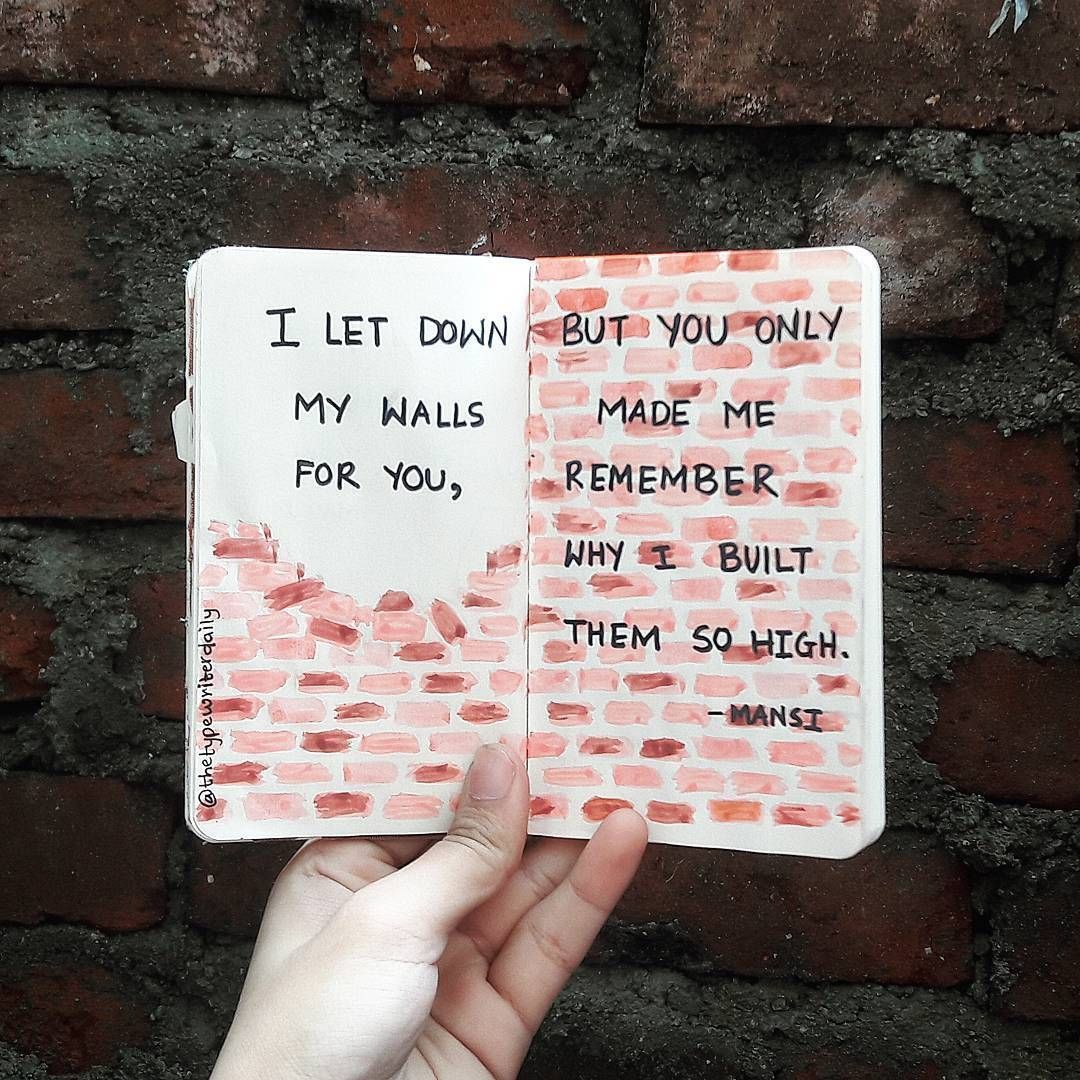 I LET DOWN
MY WALLS
FOR YOU,
BUT YOU ONLY
MADE ME
REMEMBER
WHY I BUILT
THEM SO HIGH.
-MANSI
@thetypewriterdaily